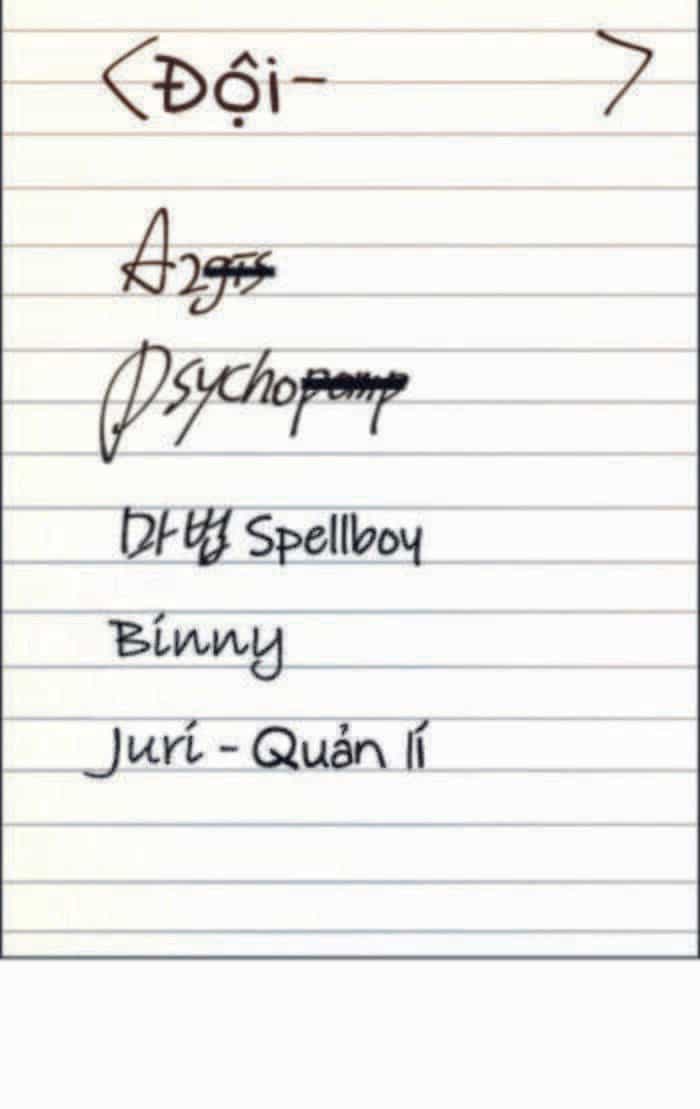 <Đội- >
Azgis
Psychopomp
마법 Spellboy
Binny
Juri - Quản lí